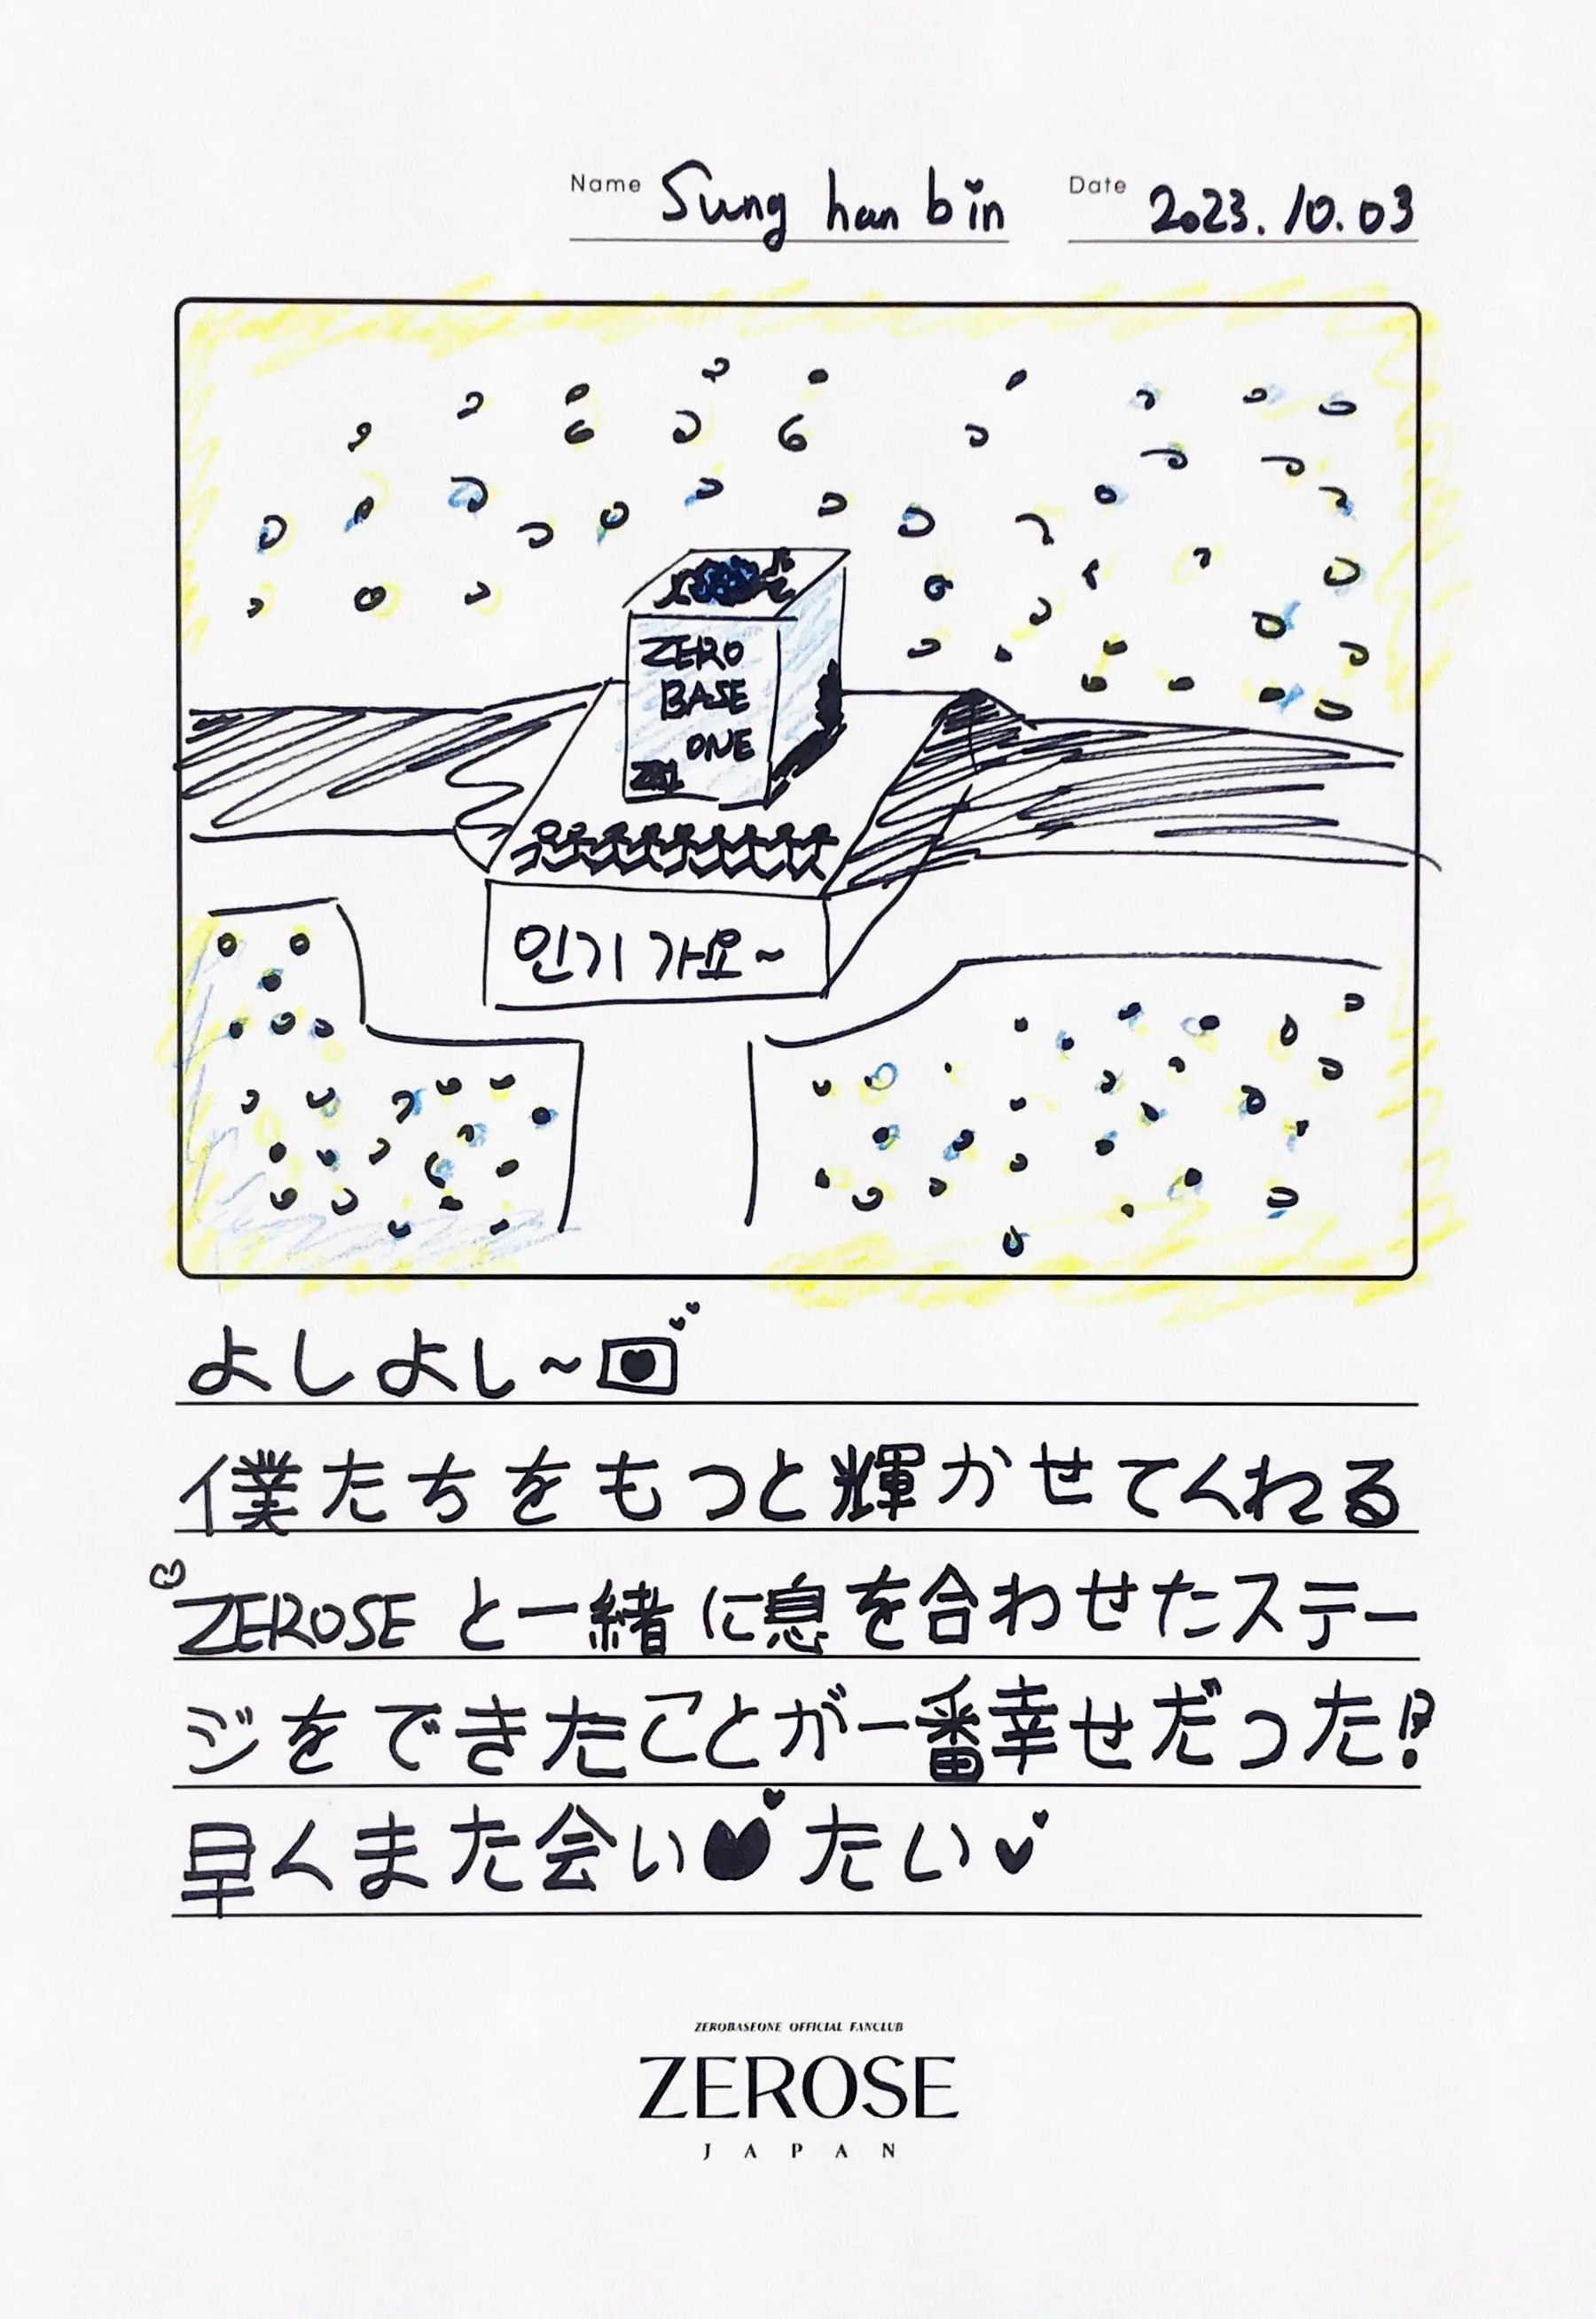 Name Sung han bin Date 2023.10.03
ZERO
BASE
ONE
ZB1
인기가요~
よしよし~
僕たちをもっと輝かせてくれる
ZEROSE と一緒に息を合わせたステー
ジをできたことが一番幸せだった!?
早くまた会いたい
ZEROBASEONE OFFICIAL FANCLUB
ZEROSE
JAPAN